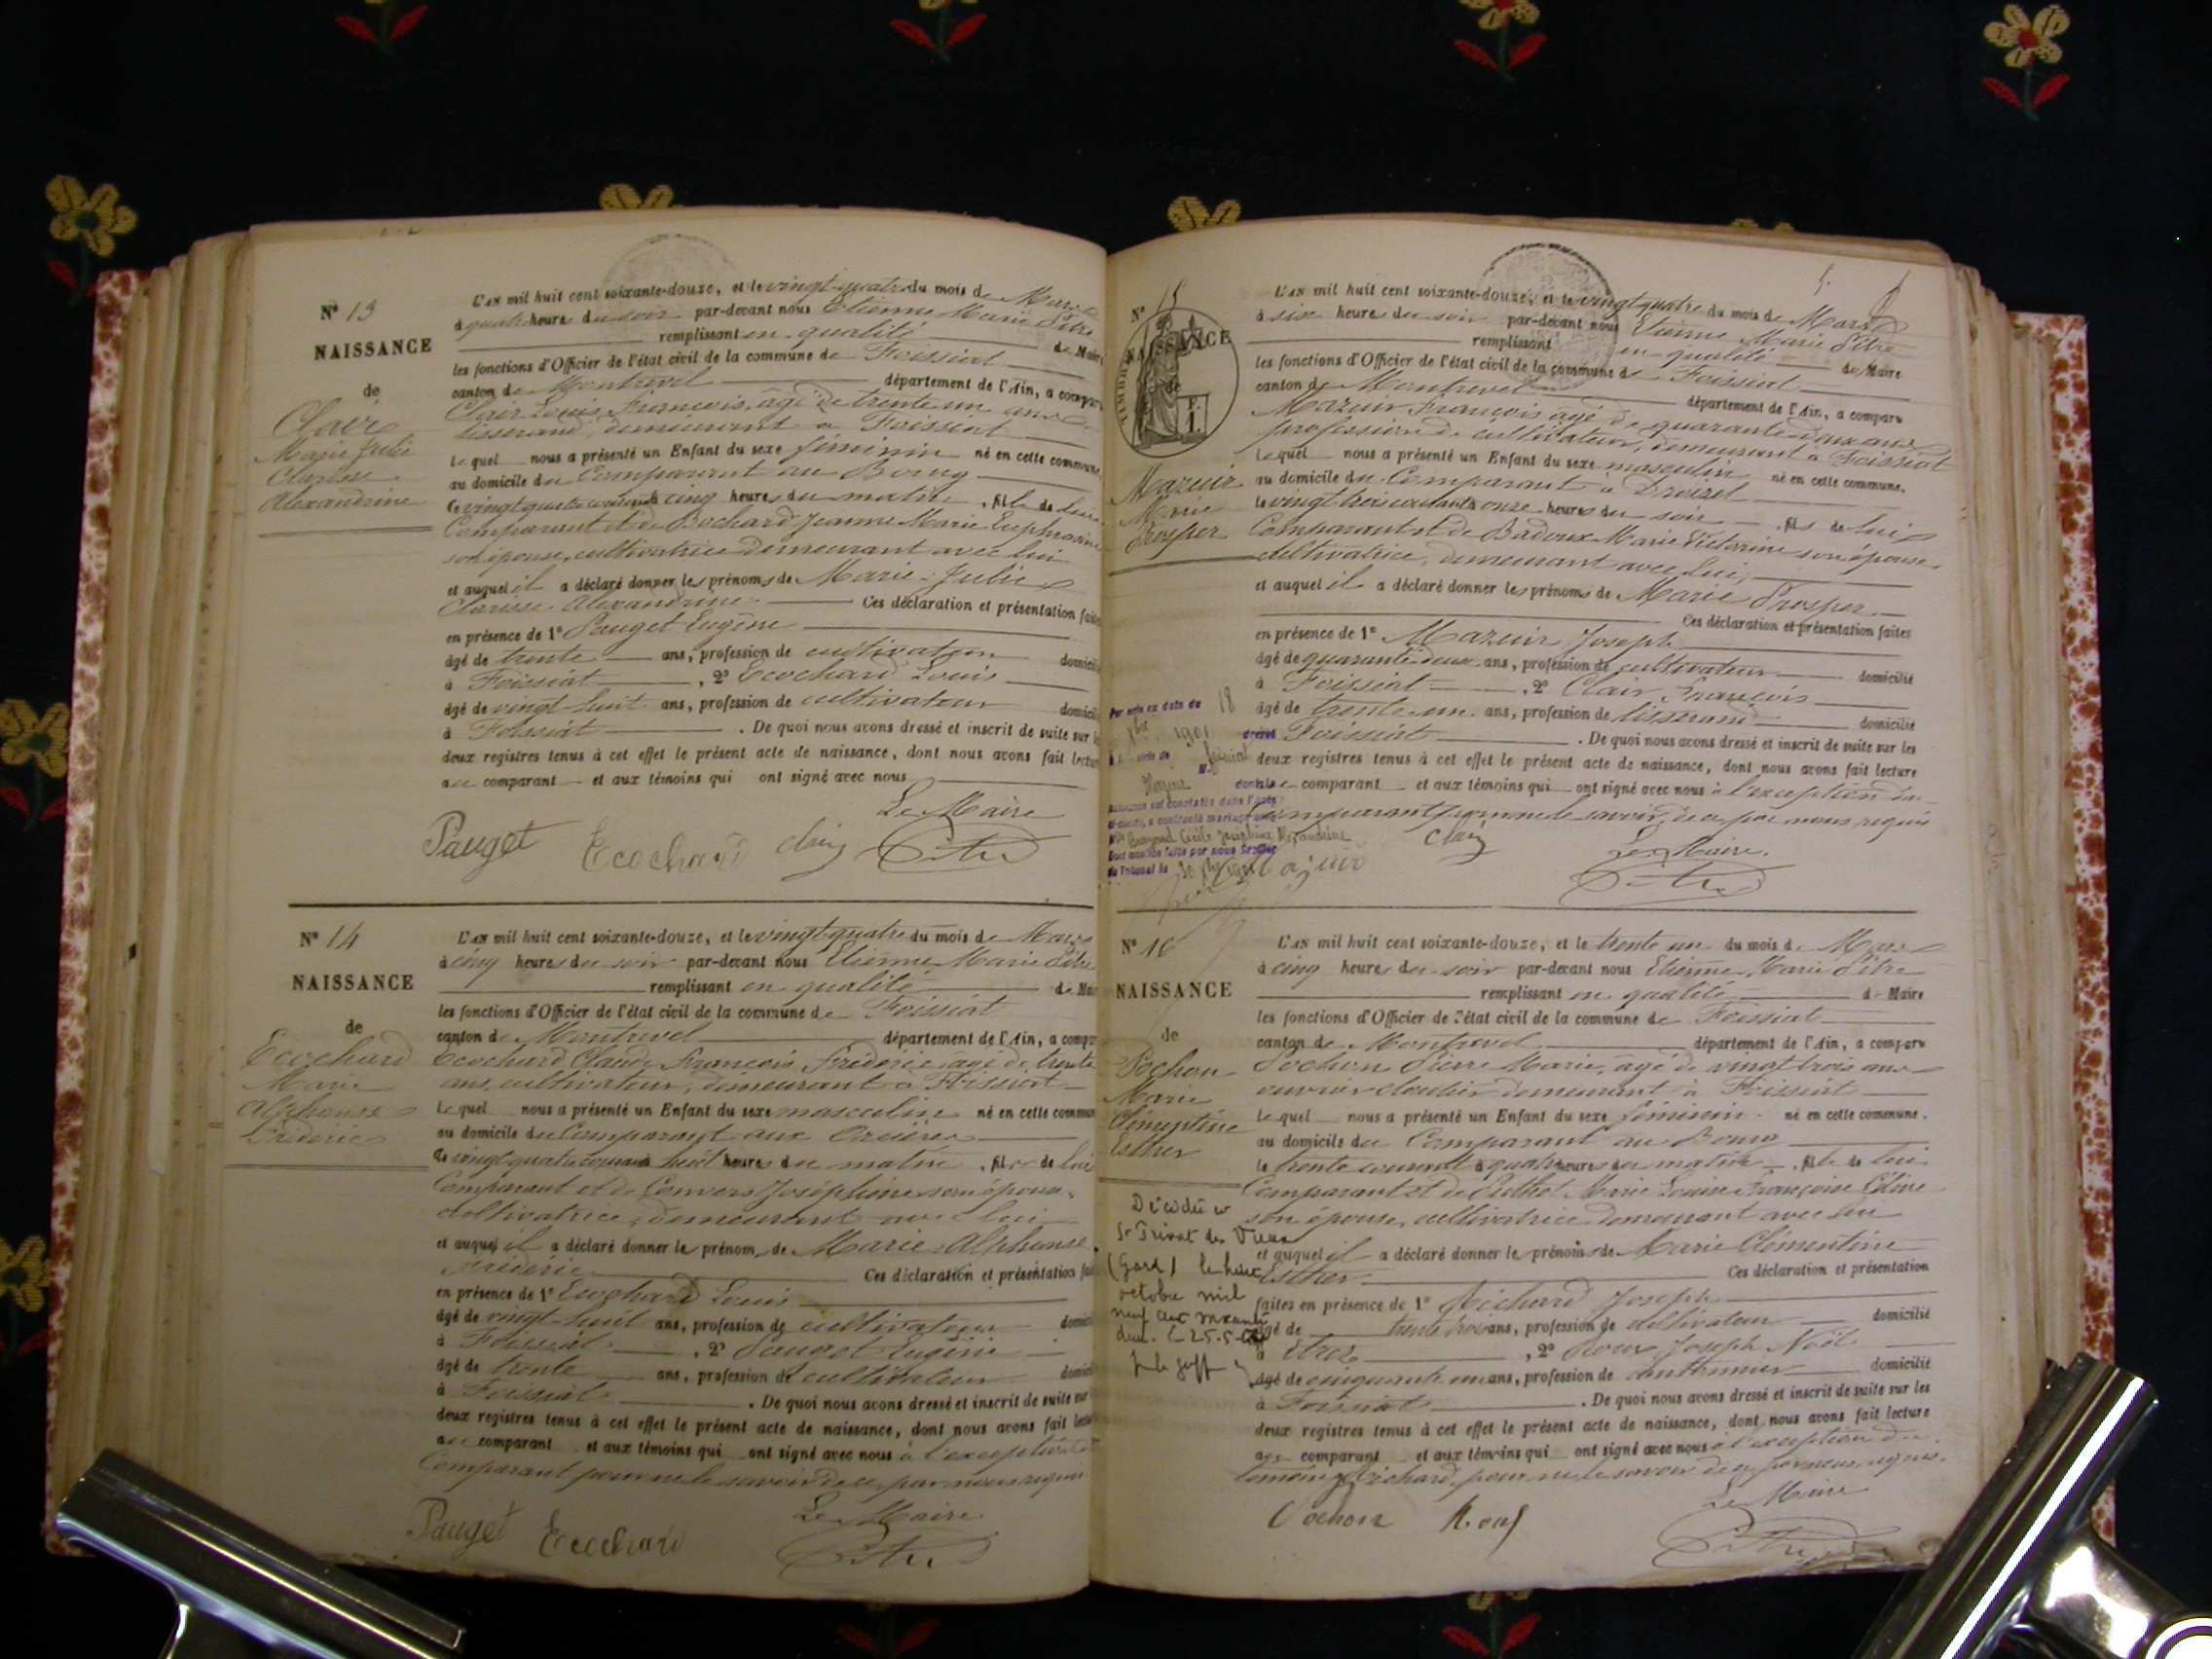 N° 13
NAISSANCE
de
Clair
Marie Julie
Clarisse
Alexandrine
L'an mil huit cent soixante-douze, et le vingt-quatre du mois de Mars
à quatre heures du soir par-devant nous Etienne Marie Pitre
remplissant en qualité de Maire
les fonctions d'Officier de l'état civil de la commune de Foissiat
canton de Montrevel département de l'Ain, a comparu
Clair Louis François, âgé de trente un ans
tisserand, demeurant à Foissiat
Lequel nous a présenté un Enfant du sexe féminin né en cette commune,
au domicile du Comparant au Bourg
le vingt quatre courant à cinq heures du matin, fille de lui
Comparant et de Bochard Jeanne Marie Euphrasine
son épouse, cultivatrice demeurant avec lui
et auquel il a déclaré donner les prénoms de Marie Julie
Clarisse Alexandrine Ces déclaration et présentation faites
en présence de 1° Pauget Eugène
âgé de trente ans, profession de cultivateur domicilié
à Foissiat, 2° Ecochard Louis
âgé de vingt huit ans, profession de cultivateur domicilié
à Foissiat. De quoi nous avons dressé et inscrit de suite sur les
deux registres tenus à cet effet le présent acte de naissance, dont nous avons fait lecture
au comparant et aux témoins qui ont signé avec nous
Le Maire
Pauget Ecochard Clair Pitre
N° 14
NAISSANCE
de
Ecochard
Marie
Alphonse
Frédéric
L'an mil huit cent soixante-douze, et le vingt quatre du mois de Mars
à cinq heures du soir par-devant nous Etienne Marie Pitre
remplissant en qualité de Maire
les fonctions d'Officier de l'état civil de la commune de Foissiat
canton de Montrevel département de l'Ain, a comparu
Ecochard Claude François Frédéric âgé de trente
ans, cultivateur, demeurant à Foissiat
Lequel nous a présenté un Enfant du sexe masculin né en cette commune
au domicile du Comparant aux
le vingt quatre courant à huit heures du matin, fils de lui
Comparant et de Convers Joséphine son épouse,
cultivatrice, demeurant avec lui
et auquel il a déclaré donner le prénom de Marie Alphonse
Frédéric Ces déclaration et présentation faites
en présence de 1° Ecochard Louis
âgé de vingt-huit ans, profession de cultivateur domicilié
à Foissiat, 2° Pauget Eugène
âgé de trente ans, profession de cultivateur domicilié
à Foissiat. De quoi nous avons dressé et inscrit de suite sur
deux registres tenus à cet effet le présent acte de naissance, dont nous avons fait lecture
au comparant et aux témoins qui ont signé avec nous à l'exception du
Comparant pour ne le savoir de ce par nous requis
Le Maire
Pauget Ecochard Pitre
5.
N° 15
NAISSANCE
de
Mazuir
Marie
Prosper
L'an mil huit cent soixante-douze, et le vingt quatre du mois de Mars
à six heures du soir par-devant nous Etienne Marie Pitre
remplissant en qualité de Maire
les fonctions d'Officier de l'état civil de la commune de Foissiat
canton de Montrevel département de l'Ain, a comparu
Mazuir François âgé de quarante-deux ans
profession de cultivateur, demeurant à Foissiat
Lequel nous a présenté un Enfant du sexe masculin né en cette commune,
au domicile du Comparant à
le vingt trois courant à onze heures du soir, fils de lui
Comparant et de Badoux Marie Victorine son épouse
cultivatrice, demeurant avec lui,
et auquel il a déclaré donner les prénoms de Marie Prosper
Ces déclaration et présentation faites
en présence de 1° Mazuir Joseph
âgé de quarante deux ans, profession de cultivateur domicilié
à Foissiat, 2° Clair François
âgé de trente-un ans, profession de tisserand domicilié
à Foissiat. De quoi nous avons dressé et inscrit de suite sur les
deux registres tenus à cet effet le présent acte de naissance, dont nous avons fait lecture
au comparant et aux témoins qui ont signé avec nous à l'exception du
comparant pour ne le savoir de ce par nous requis
Par acte en date du 18
1901
Cécile Joséphine Alexandrine
Clair Le Maire.
Mazuir Pitre
N° 16
NAISSANCE
de
Pochon
Marie
Clémentine
Esther
Décédée à
St Privat des Vieux
(Gard) le huit
octobre mil
neuf cent soixante
deux. L 25.5.
L'an mil huit cent soixante-douze, et le trente un du mois de Mars
à cinq heures du soir par-devant nous Etienne Marie Pitre
remplissant en qualité de Maire
les fonctions d'Officier de l'état civil de la commune de Foissiat
canton de Montrevel département de l'Ain, a comparu
Pochon Pierre Marie, âgé de vingt trois ans
ouvrier cloutier demeurant à Foissiat
Lequel nous a présenté un Enfant du sexe féminin né en cette commune.
au domicile du Comparant au Bourg
le trente courant à quatre heures du matin, fille de lui
Comparant et de Marie Louise Françoise
son épouse, cultivatrice demeurant avec lui
et auquel il a déclaré donner le prénoms de Marie Clémentine
Esther Ces déclaration et présentation
faites en présence de 1° Richard Joseph
âgé de trente trois ans, profession de cultivateur domicilié
à Etrez, 2° Roux Joseph Noël
âgé de cinquante un ans, profession de cantonnier domicilié
à Foissiat. De quoi nous avons dressé et inscrit de suite sur les
deux registres tenus à cet effet le présent acte de naissance, dont nous avons fait lecture
au comparant et aux témoins qui ont signé avec nous à l'exception du
témoin Richard, pour ne le savoir de ce par nous requis.
Le Maire
Pochon Roux Pitre